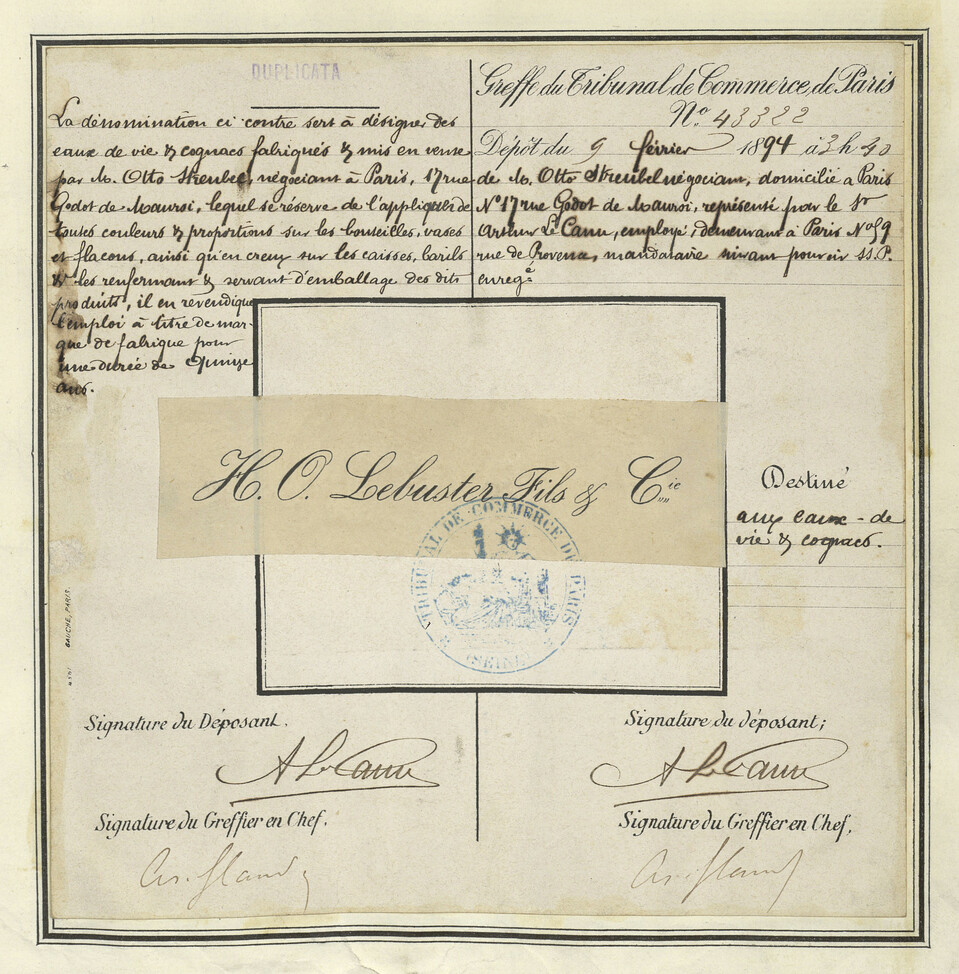 DUPLICATA
La dénomination ci contre sert à désigner des
eaux de vie & cognacs fabriqués & mis en vente
par M. Otto Streubel, négociant à Paris, 17 rue
Godot de Mauroi, lequel se réserve de l'appliquer de
toutes couleurs & proportions sur les bouteilles, vases
et flacons, ainsi qu'en creux sur les caisses, barils
& les renfermant & servant d'emballage des dits
produits, il en revendique
l'emploi à titre de mar-
que de fabrique pour
une durée de Quinze
ans.
Greffe du Tribunal de Commerce, de Paris
No. 43322
Dépôt du 9 février 1894 à 3 h 40
de M. Otto Streubel négociant, domicilié a Paris
No 17 rue Godot de Mauroi, représenté par le Sr
Arthur Le Canu, employé, demeurant à Paris No 59
rue de Provence, mandataire suivant pouvoir SS.P.
enregé
H. O. Lebuster Fils & Cie
TRIBUNAL DE COMMERCE DE PARIS
(SEINE)
Destiné
aux eaux-de
vie & cognacs.
GAUCHE, PARIS.
Signature du Déposant.
A Le Canu
Signature du Greffier en Chef.
Signature du déposant;
A Le Canu
Signature du Greffier en Chef.